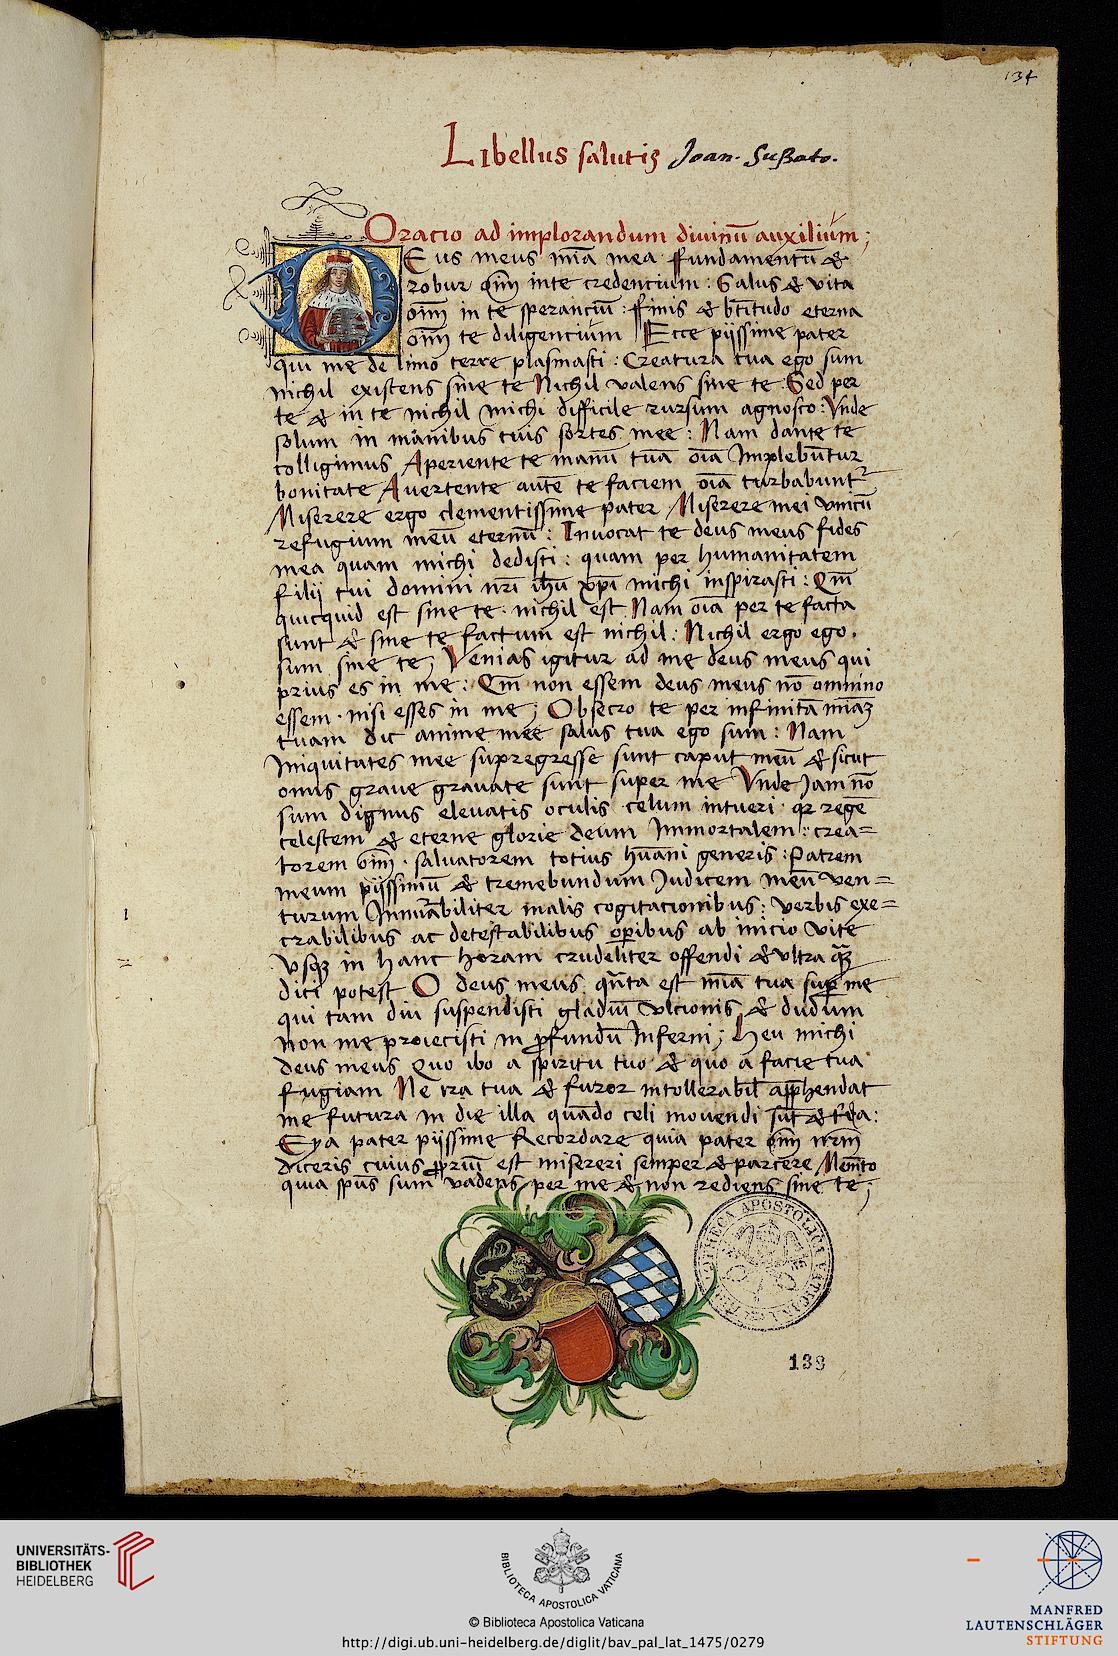 134
Libellus salutis Joan. Sußato.
Oracio ad implorandum divinū auxilium;
Deus meus mīa mea fundamentū &
robur oīm in te credencium : Salus & vita
oīm in te sperancium : finis & btītudo eterna
oīm te diligencium Ecce pijssime pater
qui me de limo terre plasmasti : Creatura tua ego sum
nichil existens sine te Nichil valens sine te Sed per
te & in te nichil michi difficile rursum agnosco : Vnde
solum in manibus tuis sortes mee : Nam dante te
colligimus Aperiente te manū tuā oīa Implebūtur
bonitate Auertente autē te faciem oīa turbabuntr
Miserere ergo clementissime pater Miserere mei vnicū
refugium meū eternū : Inuocat te deus meus fides
mea quam michi dedisti : quam per humanitatem
filij tui domini nrī ihū xpī michi inspirasti : Qm̄
quicquid est sine te nichil est Nam oīa per te facta
sunt & sine te factum est nichil : Nichil ergo ego
sum sine te ; Venias igitur ad me deus meus qui
prius es in me : Qm̄ non essem deus meus nō omnino
essem nisi esses in me ; Obsecro te per infinitā mīaꝫ
tuam dic anime mee salus tua ego sum : Nam
Iniquitates mee supregresse sunt caput meū & sicut
onus graue grauate sunt super me Vnde Jam nō
sum dignus eleuatis oculis celum intueri qr regē
celestem & eterne glorie deum Immortalem : crea=
torem oīm saluatorem totius hūani generis : Patrem
meum pijssimū & tremebundum Judicem meū ven=
turum Innūabiliter malis cogitacionibus : verbis exe=
crabilibus ac detestabilibus oꝑibus ab inicio vite
vsqꝫ in hanc horam crudeliter offendi & vltra qꝫ
dici potest O deus meus qn̄ta est mīa tua suꝑ me
qui tam diu suspendisti gladiū vlcionis & dudum
non me proiecisti in ꝓfundū Inferni ; Heu michi
deus meus Quo ibo a spiritu tuo & quo a facie tua
fugiam Ne ira tua & furor intollerabil apphendat
me futura in die illa quādo celi mouendi sūt & tr̄a :
Eya pater pijssime Recordare quia pater oīm nrm̄
diceris cuius ꝓpriū est misereri semper & parcere Memēto
quia spūs sum vadens per me & non rediens sine te ;
138
UNIVERSITÄTS-
BIBLIOTHEK
HEIDELBERG
BIBLIOTECA APOSTOLICA VATICANA
© Biblioteca Apostolica Vaticana
http://digi.ub.uni-heidelberg.de/diglit/bav_pal_lat_1475/0279
MANFRED
LAUTENSCHLÄGER
STIFTUNG